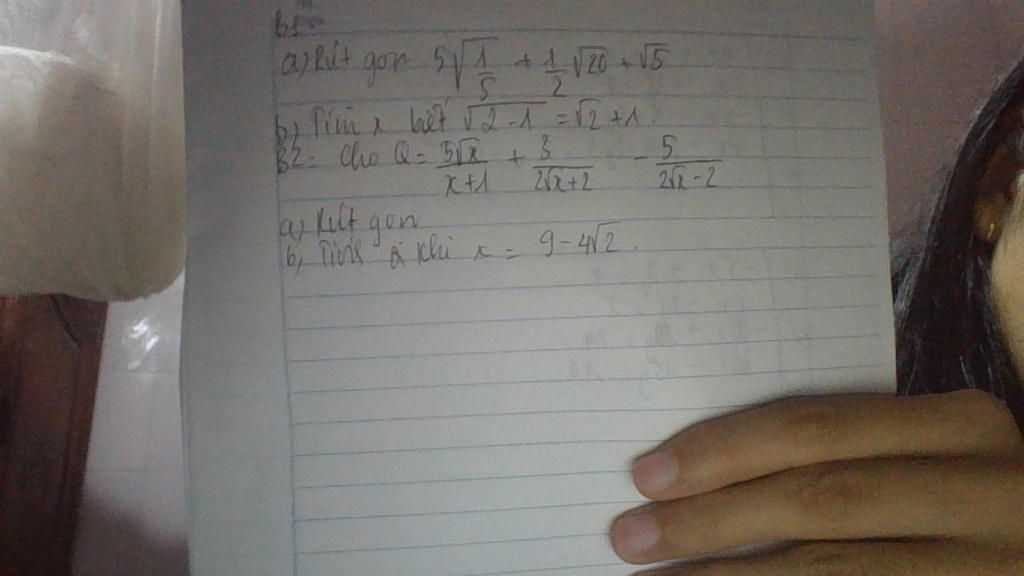 B1:
a) Rút gọn 5√1/5 + 1/2 √20 + √5
b) Tìm x biết √2-1 = √2 + 1.
B2: Cho Q = 5√x/x+1 + 3/2√x+2 - 5/2√x-2
a) Rút gọn
b) Tính Q khi x = 9-4√2.